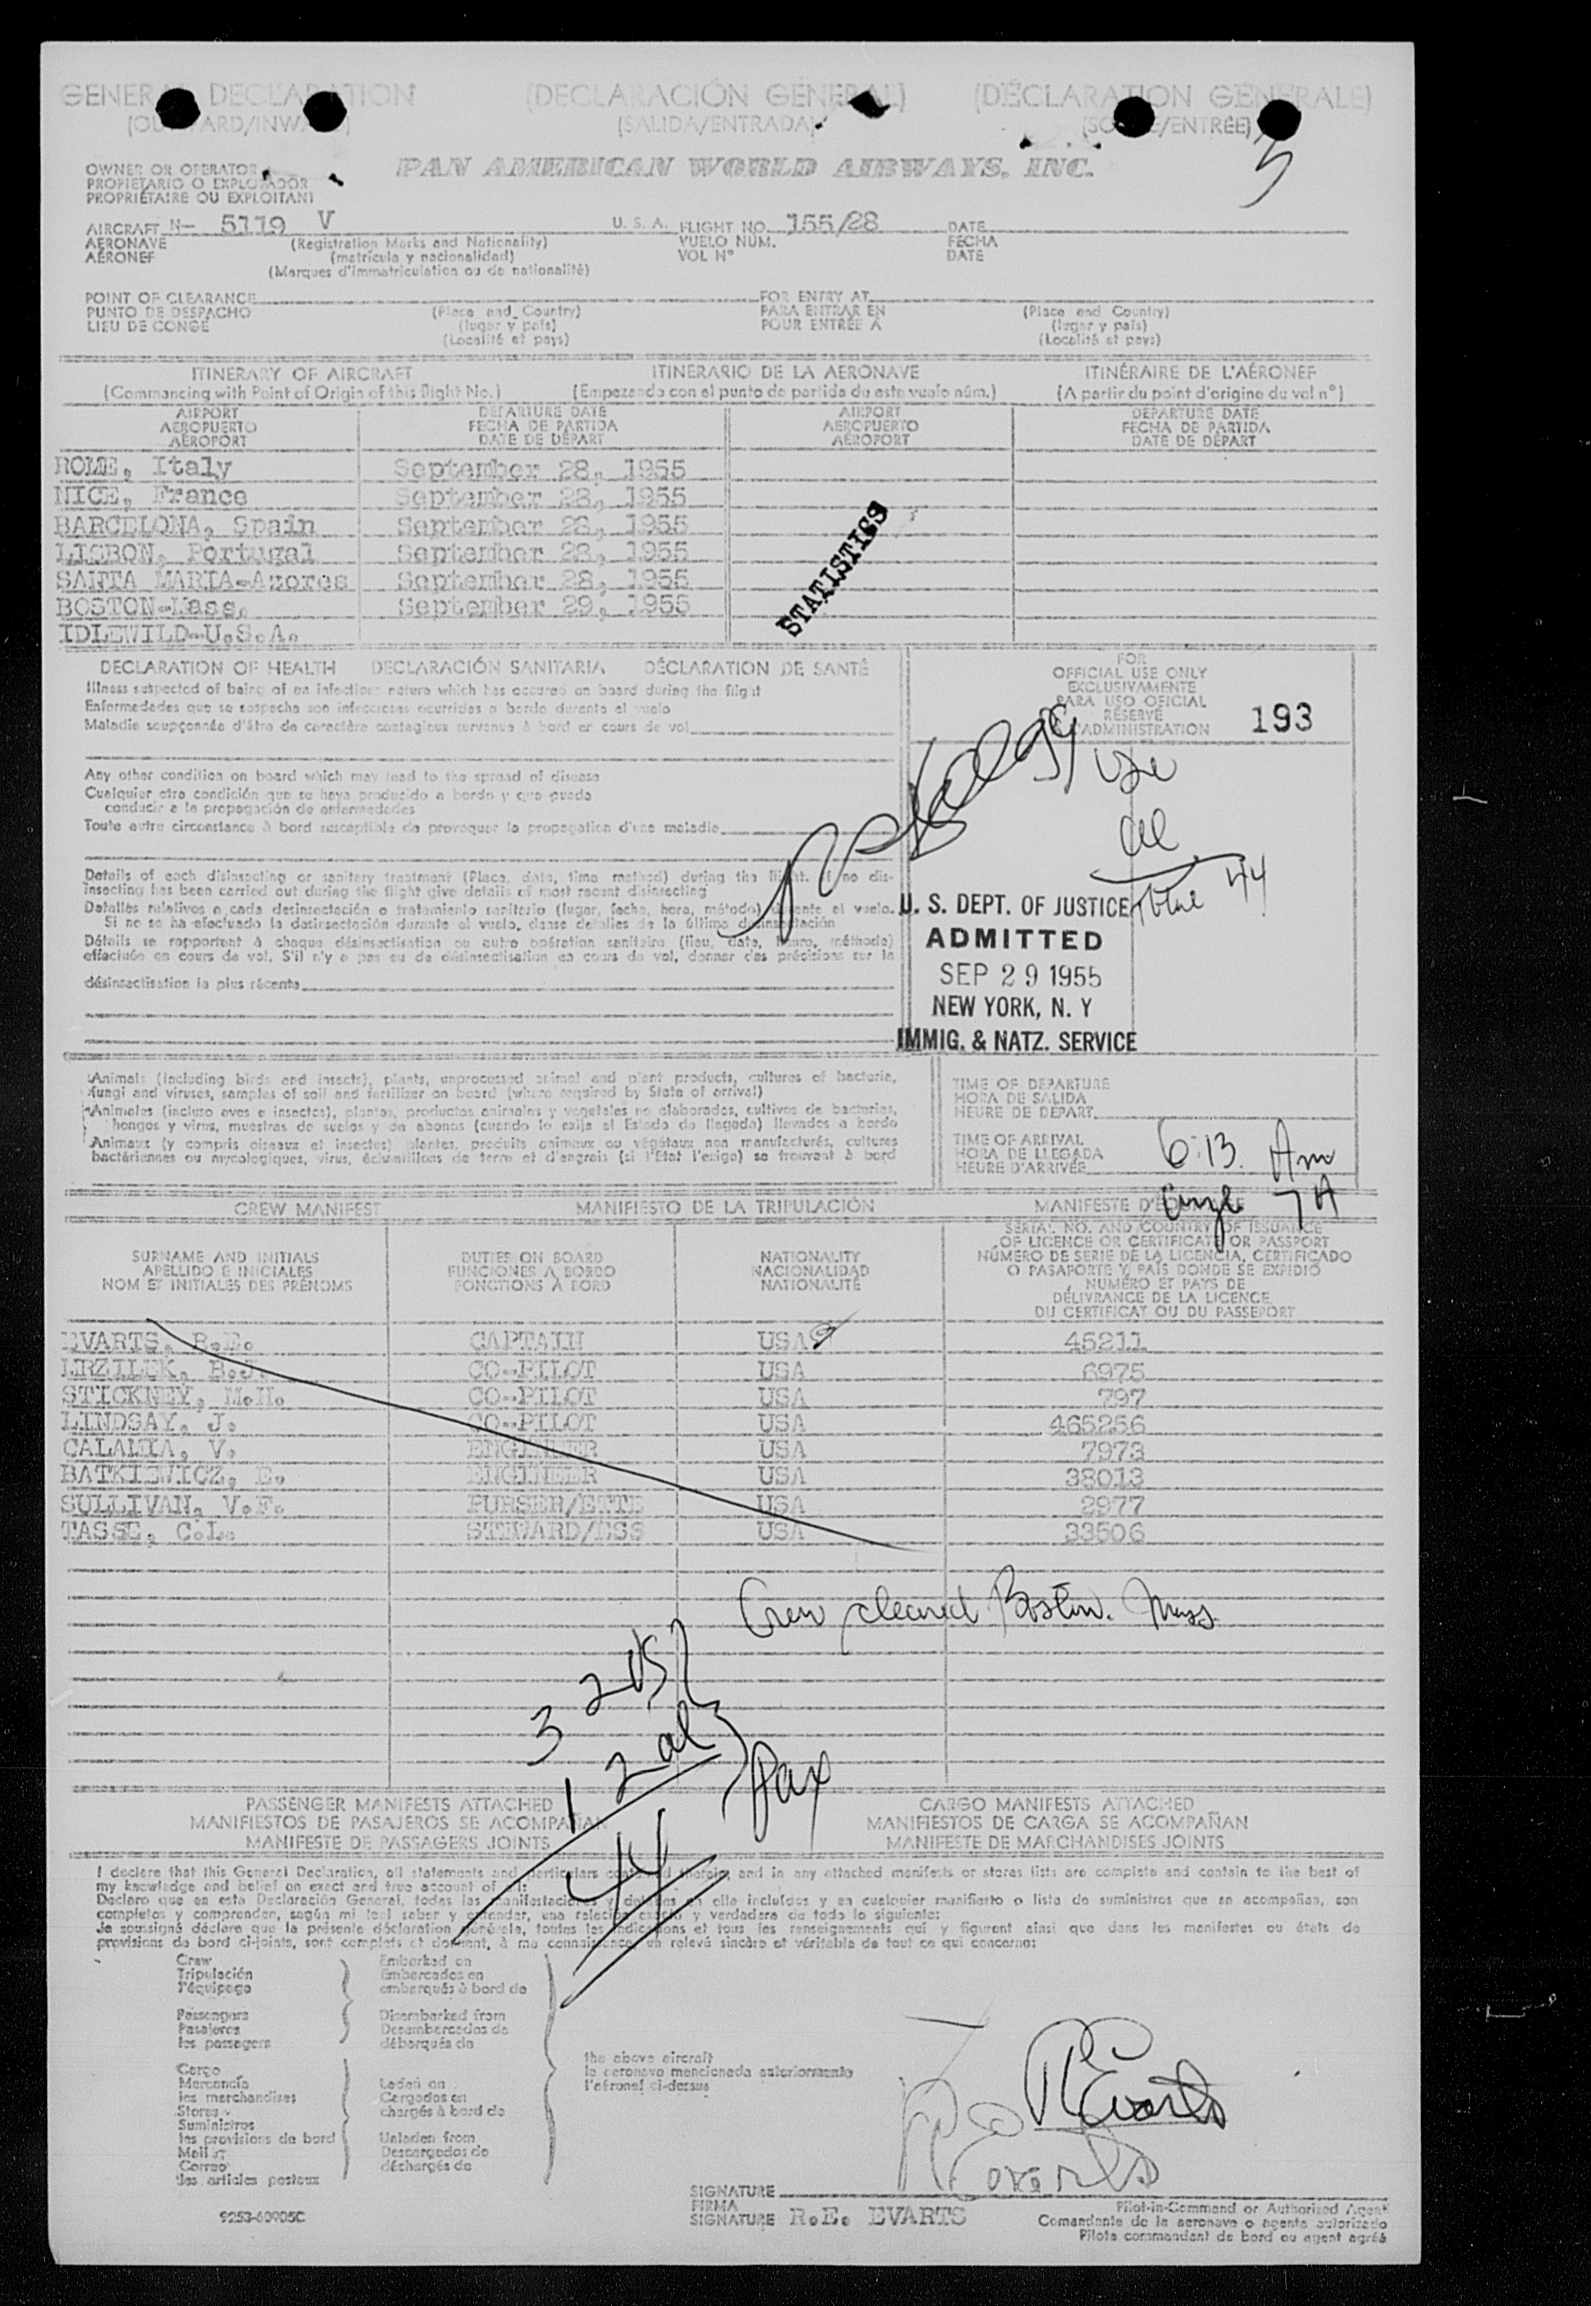 GENERAL DECLARATION (DECLARACIÓN GENERAL) (DÉCLARATION GÉNÉRALE)
(OUTWARD/INWARD) (SALIDA/ENTRADA) (SORTIE/ENTRÉE)
5
OWNER OR OPERATOR PAN AMERICAN WORLD AIRWAYS, INC.
PROPIETARIO O EXPLOTADOR
PROPRIÉTAIRE OU EXPLOITANT
AIRCRAFT N- 5119 V U. S. A. FLIGHT NO. 155/28 DATE
AERONAVE (Registration Marks and Nationality) VUELO NÚM. FECHA
AÉRONEF (matrícula y nacionalidad) VOL Nº DATE
(Marques d'immatriculation ou de nationalité)
POINT OF CLEARANCE FOR ENTRY AT
PUNTO DE DESPACHO (Place and Country) PARA ENTRAR EN (Place and Country)
LIEU DE CONGÉ (lugar y país) POUR ENTRÉE À (lugar y país)
(Localité et pays) (Localité et pays)
ITINERARY OF AIRCRAFT ITINERARIO DE LA AERONAVE ITINÉRAIRE DE L'AÉRONEF
(Commencing with Point of Origin of this Flight No.) (Empezando con el punto de partida de este vuelo núm.) (A partir du point d'origine du vol nº)
AIRPORT DEPARTURE DATE AIRPORT DEPARTURE DATE
AEROPUERTO FECHA DE PARTIDA AEROPUERTO FECHA DE PARTIDA
AÉROPORT DATE DE DÉPART AÉROPORT DATE DE DÉPART
ROME, Italy September 28, 1955
NICE, France September 28, 1955
BARCELONA, Spain September 28, 1955
LISBON, Portugal September 28, 1955
SANTA MARIA-Azores September 28, 1955
BOSTON-Mass. September 29, 1955
IDLEWILD-U.S.A.
STATISTICS
DECLARATION OF HEALTH DECLARACIÓN SANITARIA DÉCLARATION DE SANTÉ
Illness suspected of being of an infectious nature which has occured on board during the flight
Enfermedades que se sospecha son infecciosas ocurridas a bordo durante el vuelo
Maladie soupçonnée d'être de caractère contagieux survenue à bord en cours de vol
FOR
OFFICIAL USE ONLY
EXCLUSIVAMENTE
PARA USO OFICIAL
RÉSERVÉ
L'ADMINISTRATION
193
Any other condition on board which may lead to the spread of disease
Cualquier otra condición que se haya producido a bordo y que pueda
conducir a la propagación de enfermedades
Toute autre circonstance à bord susceptible de provoquer la propagation d'une maladie
44
Details of each disinsecting or sanitary treatment (Place, date, time method) during the flight. If no dis-
insecting has been carried out during the flight give details of most recent disinsecting
Detalles relativos a cada desinsectación o tratamiento sanitario (lugar, fecha, hora, método) durante el vuelo.
Si no se ha efectuado la desinsectación durante el vuelo, danse detalles de la última desinsectación
Détails se rapportent à chaque désinsectisation ou autre opération sanitaire (lieu, date, heure, méthode)
effectuée en cours de vol. S'il n'y a pas eu de désinsectisation en cours de vol, donner des précisions sur la
désinsectisation la plus récente
U. S. DEPT. OF JUSTICE
ADMITTED
SEP 29 1955
NEW YORK, N. Y
IMMIG. & NATZ. SERVICE
Animals (including birds and insects), plants, unprocessed animal and plant products, cultures of bacteria,
fungi and viruses, samples of soil and fertilizer on board (where required by State of arrival)
Animales (incluso aves e insectos), plantas, productos animales y vegetales no elaborados, cultivos de bacterias,
hongos y virus, muestras de suelos y de abonos (cuando lo exija el Estado de llegada) llevados a bordo
Animaux (y compris oiseaux et insectes) plantes, produits animaux ou végétaux non manufacturés, cultures
bactériennes ou mycologiques, virus, échantillons de terre et d'engrais (si l'État l'exige) se trouvant à bord
TIME OF DEPARTURE
HORA DE SALIDA
HEURE DE DEPART
TIME OF ARRIVAL
HORA DE LLEGADA
HEURE D'ARRIVÉE
6:13 Am
7A
CREW MANIFEST MANIFIESTO DE LA TRIPULACIÓN MANIFESTE D'ÉQUIPAGE
SURNAME AND INITIALS
APELLIDO E INICIALES
NOM ET INITIALES DES PRÉNOMS
DUTIES ON BOARD
FUNCIONES A BORDO
FONCTIONS À BORD
NATIONALITY
NACIONALIDAD
NATIONALITÉ
SERIAL NO. AND COUNTRY OF ISSUANCE
OF LICENCE OR CERTIFICATE OR PASSPORT
NÚMERO DE SERIE DE LA LICENCIA, CERTIFICADO
O PASAPORTE Y PAÍS DONDE SE EXPIDIÓ
NUMÉRO ET PAYS DE
DÉLIVRANCE DE LA LICENCE
DU CERTIFICAT OU DU PASSEPORT
EVARTS, R.E. CAPTAIN USA 45211
B.J. CO-PILOT USA 6975
STICKNEY, M.H. CO-PILOT USA 797
LINDSAY, J. CO-PILOT USA 465256
CALAMIA, V. ENGINEER USA 7973
BATKIEWICZ, E. ENGINEER USA 38013
SULLIVAN, V.F. PURSER/ETTE USA 2977
TASSE, C.L. STEWARD/ESS USA 33506
Crew cleared Boston. Mass.
3 2 US
1 2 al
44
Pax
PASSENGER MANIFESTS ATTACHED CARGO MANIFESTS ATTACHED
MANIFIESTOS DE PASAJEROS SE ACOMPAÑAN MANIFIESTOS DE CARGA SE ACOMPAÑAN
MANIFESTE DE PASSAGERS JOINTS MANIFESTE DE MARCHANDISES JOINTS
I declare that this General Declaration, all statements and particulars contained therein, and in any attached manifests or stores lists are complete and contain to the best of
my knowledge and belief an exact and true account of all:
Declaro que en esta Declaración General, todas las manifestaciones y detalles en ella incluídos y en cualquier manifiesto o lista de suministros que se acompañan, son
completos y comprenden, según mi leal saber y entender, una relación exacta y verdadera de todo lo siguiente:
Je soussigné déclare que la présente déclaration générale, toutes les indications et tous les renseignements qui y figurent ainsi que dans les manifestes ou états de
provisions de bord ci-joints, sont complets et donnent, à ma connaissance, un relevé sincère et véritable de tout ce qui concerne:
Crew
Tripulación
l'équipage
Passengers
Pasajeros
les passagers
Cargo
Mercancía
les marchandises
Stores
Suministros
les provisions de bord
Mail
Correo
les articles postaux
Embarked on
Embarcados en
embarqués à bord de
Disembarked from
Desembarcados de
débarqués de
Laden on
Cargados en
chargés à bord de
Unladen from
Descargados de
déchargés de
the above aircraft
la aeronave mencionada anteriormente
l'aéronef ci-dessus
R E Evarts
R E Evarts
SIGNATURE
FIRMA
SIGNATURE R.E. EVARTS
Pilot-in-Command or Authorized Agent
Comandante de la aeronave o agente autorizado
Pilote commandant de bord ou agent agréé
9253-60905C